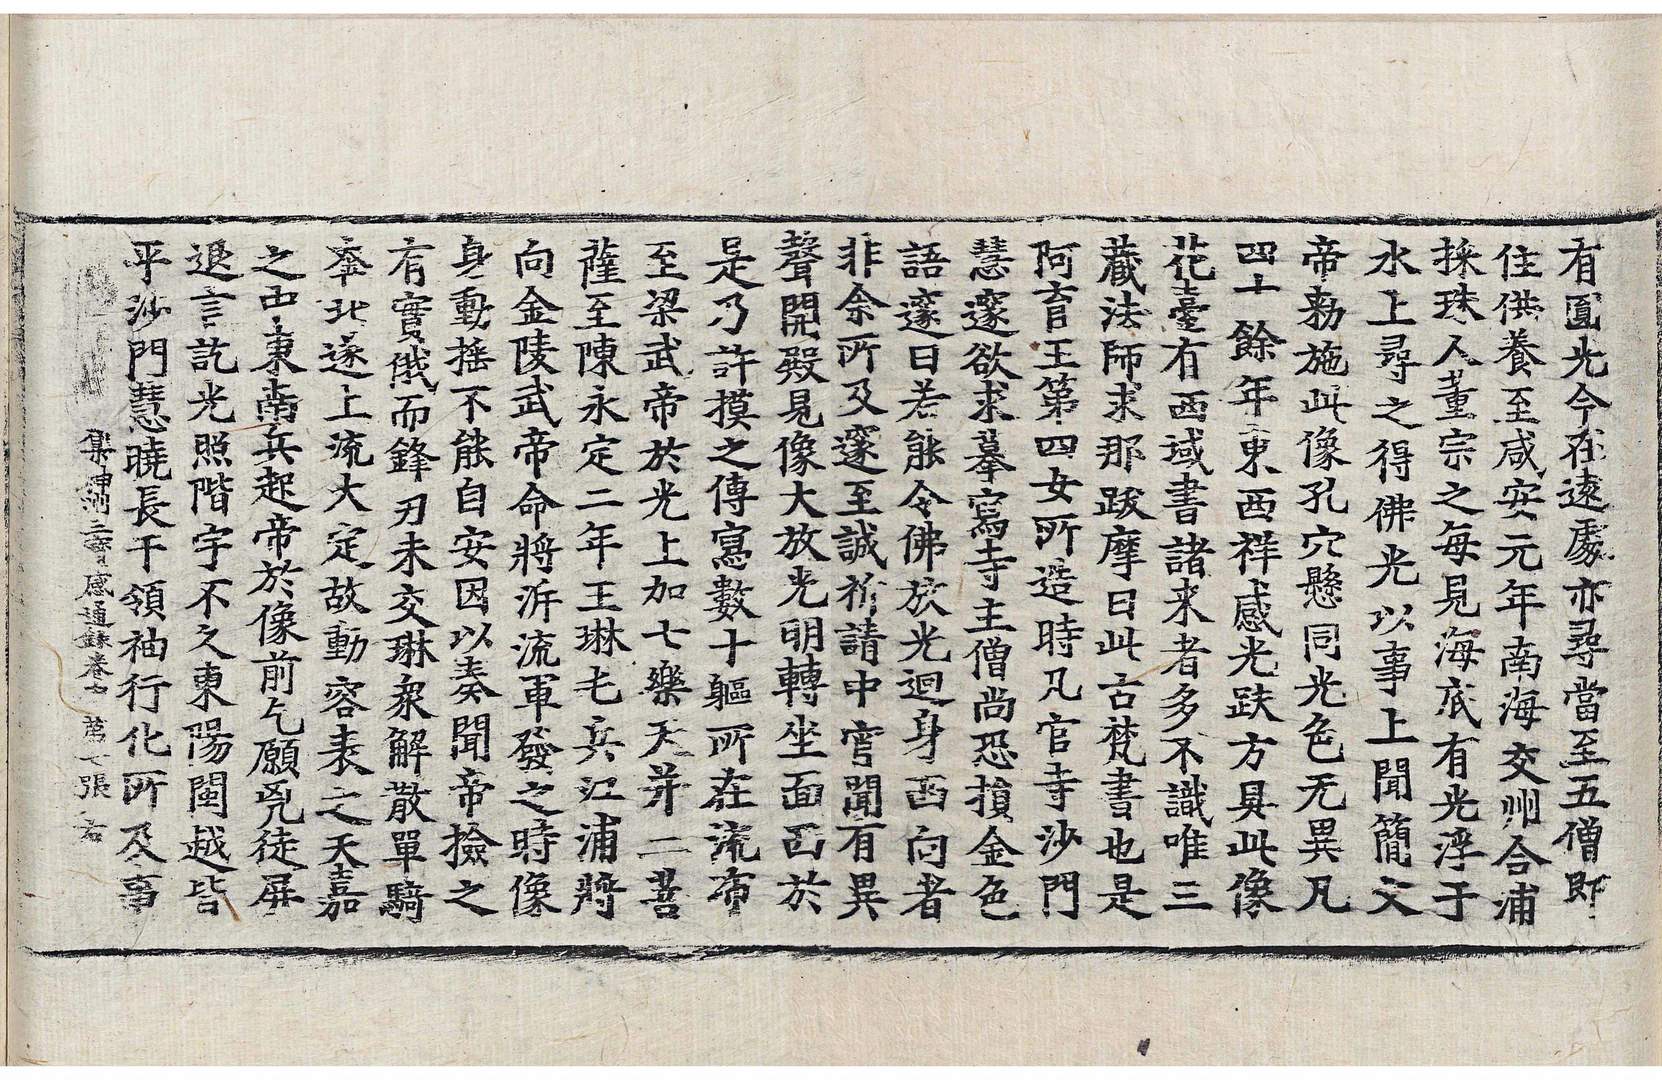 有圓光今在遠處亦尋當至五僧即
住供養至咸安元年南海交州合浦
採珠人董宗之每見海底有光浮于
水上尋之得佛光以事上聞簡文
帝勑施此像孔穴懸同光色无異凡
四十餘年東西祥感光趺方具此像
花臺有西域書諸来者多不識唯三
藏法師求那跋摩曰此古梵書也是
阿育王第四女所造時凡官寺沙門
慧邃欲求摹寫寺主僧尚恐損金色
語邃曰若能令佛放光迴身西向者
非余所及邃至誠祈請中宵聞有異
聲開殿見像大放光明轉坐面西於
是乃許摸之傳寫數十軀所在流布
至梁武帝於光上加七樂天并二菩
薩至陳永定二年王琳屯兵江浦將
向金陵武帝命將泝流軍發之時像
身動揺不能自安因以奏聞帝撿之
有實俄而鋒刃未交琳衆解散單騎
奔北遂上流大定故動容表之天嘉
之中東南兵起帝於像前乞願兇徒屏
退言訖光照階宇不久東陽閩越皆
平沙門慧曉長干領袖行化所及事
集神州三寶感通錄卷七 第七張 右